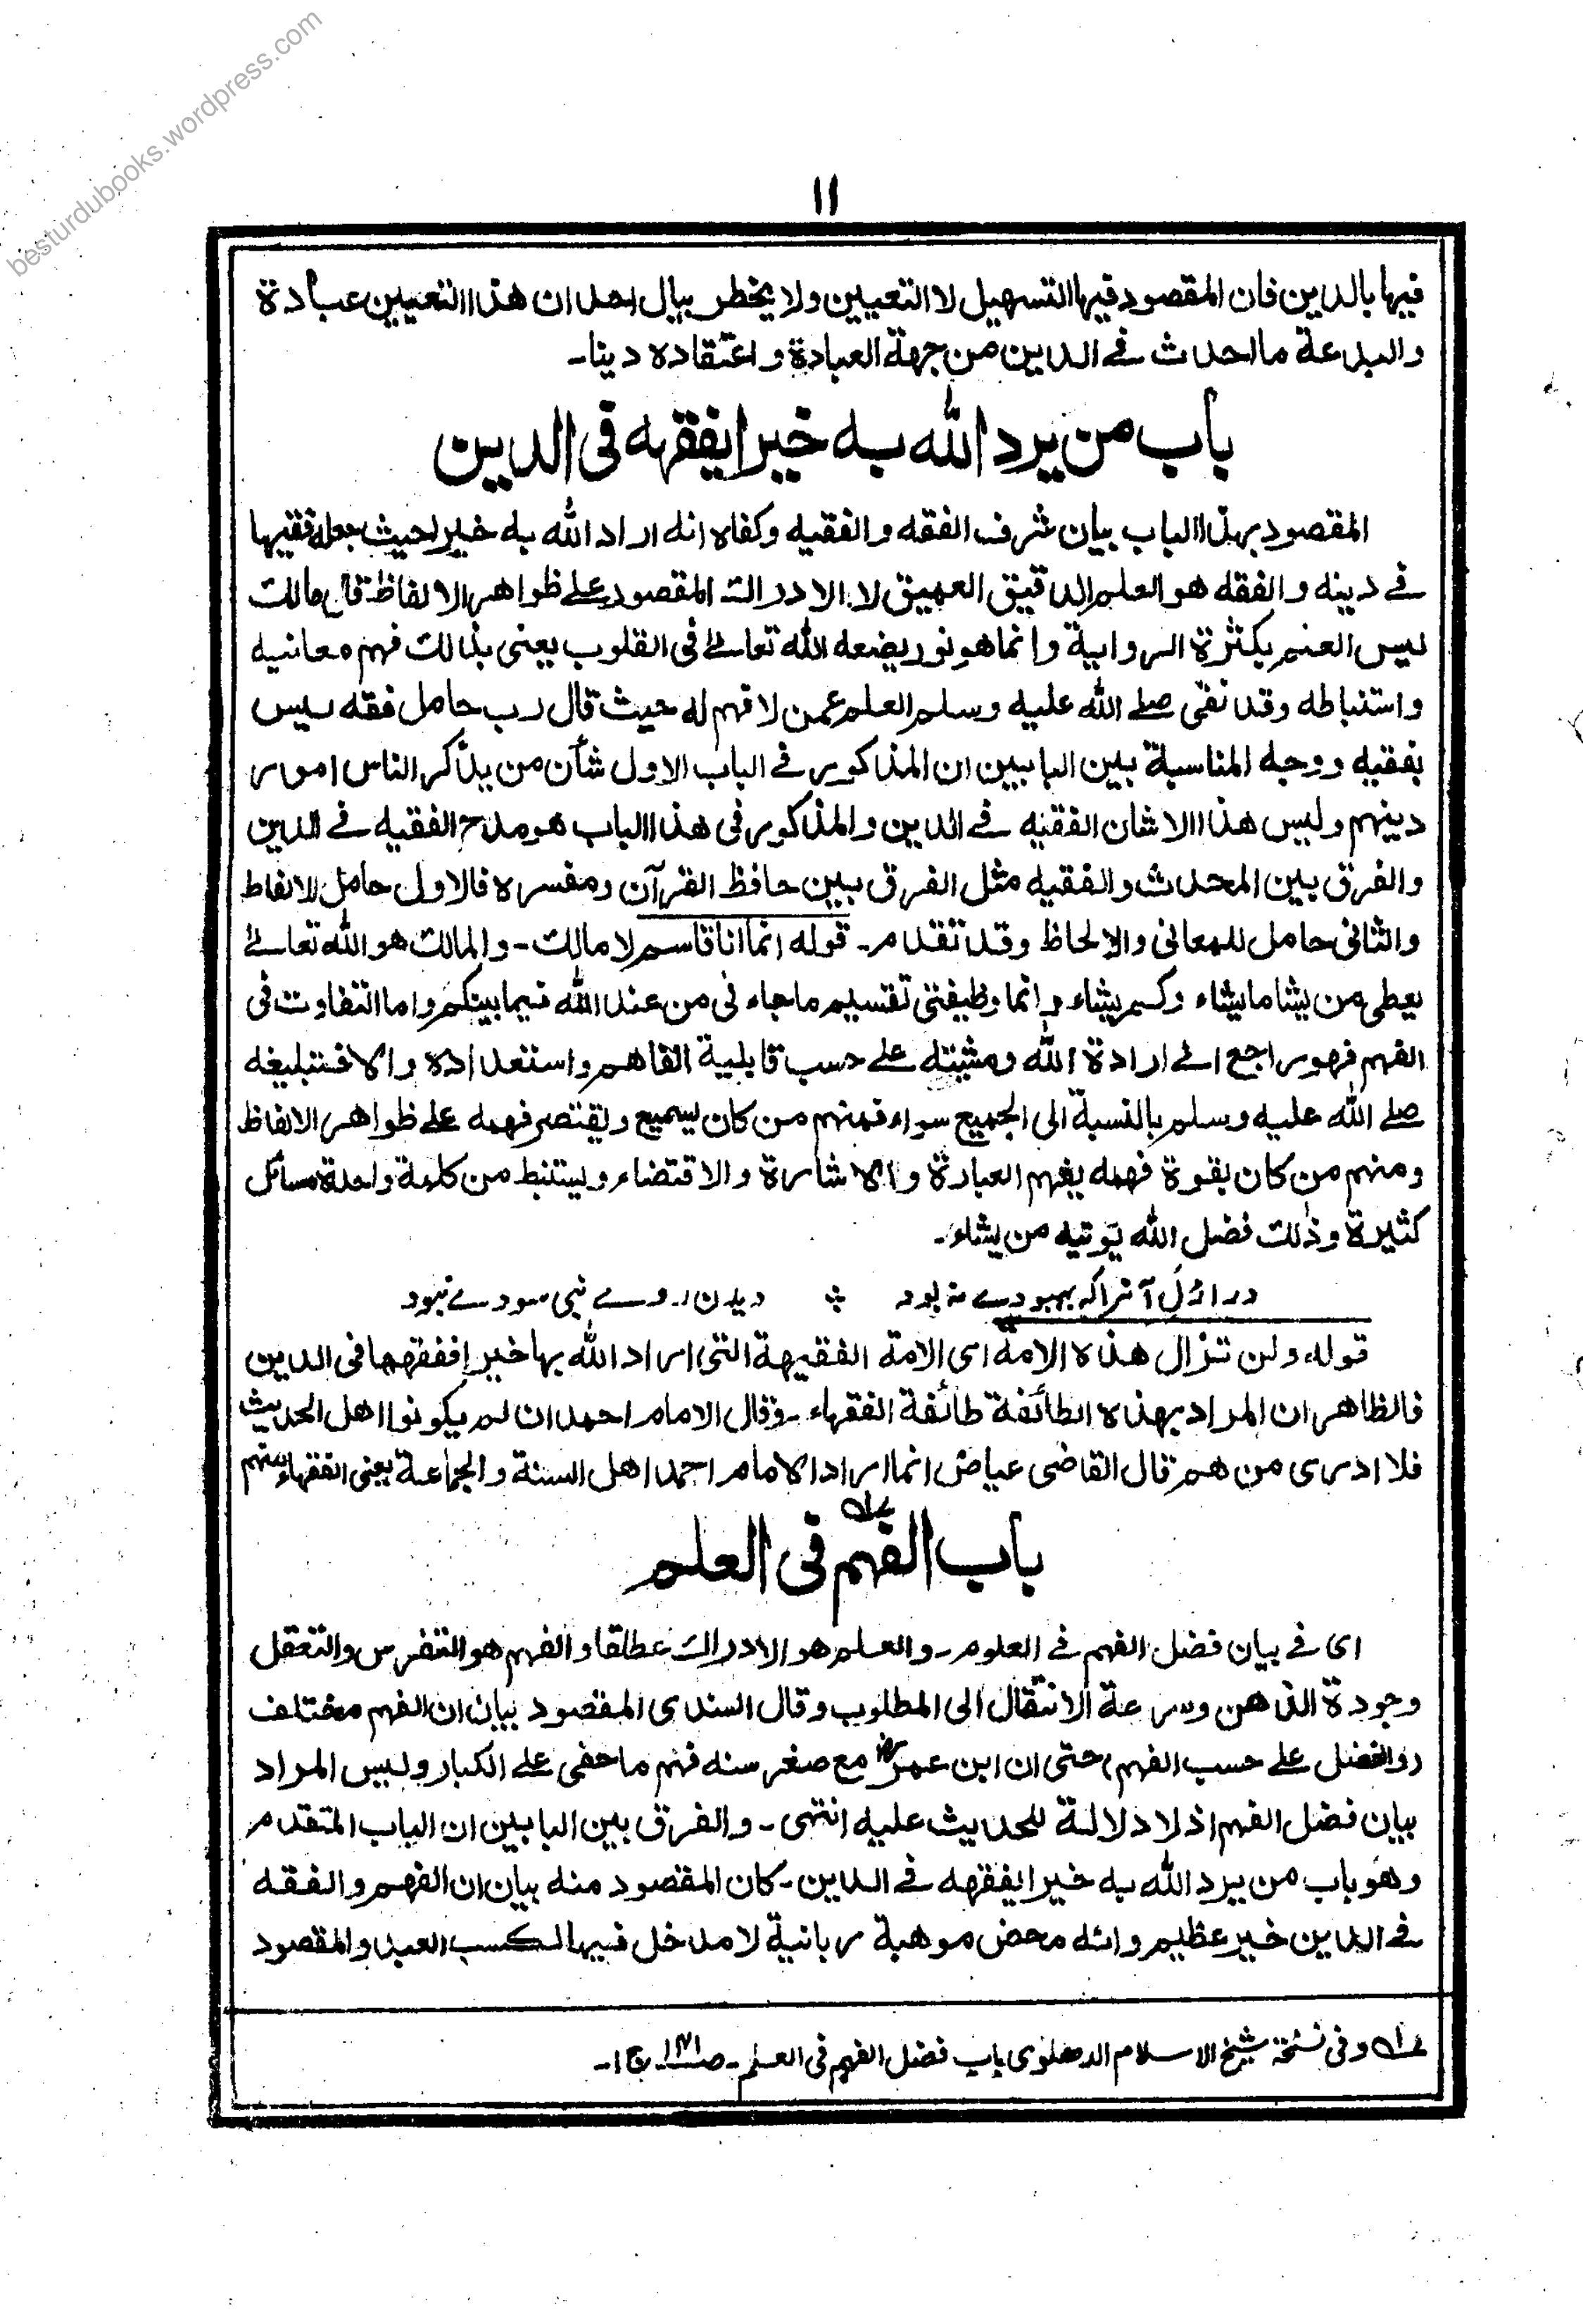 besturdubooks.wordpress.com
١١
فيها بالدين فان المقصود فيها التسهيل لا التعيين ولا يخطر ببال احد ان هذا التعيين عبادة
والبدعة ما احدث في الدين من جهة العبادة واعتقاده دينا-
باب من يرد الله به خيرا يفقهه فى الدين
المقصود بهذا الباب بيان شرف الفقه والفقيه وكفاه انه اراد الله به خيرا حيث جعله فقيها
في دينه والفقه هو العلم الدقيق العميق لا الادراك المقصود على ظواهر الالفاظ قال مالك
ليس العلم بكثرة الرواية وانما هو نور يضعه الله تعالى فى القلوب يعنى بذالك فهم معانيه
واستنباطه وقد نفى صلى الله عليه وسلم العلم عمن لا فهم له حيث قال رب حامل فقه ليس
بفقيه ووجه المناسبة بين البابين ان المذكور في الباب الاول شأن من يذكر الناس امور
دينهم وليس هذا الا شان الفقيه في الدين والمذكور فى هذا الباب هو مدح الفقيه في الدين
والفرق بين المحدث والفقيه مثل الفرق بين حافظ القرآن ومفسره فالاول حامل للالفاظ
والثانى حامل للمعانى والالحاظ وقد تقدم- قوله انما انا قاسم لا مالك- والمالك هو الله تعالى
يعطى من يشا ما يشاء وكم يشاء وانما وظيفتى تقسيم ما جاء نى من عند الله فيما بينكم واما التفاوت فى
الفهم فهو راجع الى ارادة الله ومشيته على حسب قابلية الفاهم واستعداده والا فتبليغه
صلى الله عليه وسلم بالنسبة الى الجميع سواء فمنهم من كان يسمع ويقتصر فهمه على ظواهر الالفاظ
ومنهم من كان بقوة فهمه يفهم العبارة والاشارة والاقتضاء ويستنبط من كلمة واحدة مسائل
كثيرة وذلك فضل الله يوتيه من يشاء-
در ازل آنرا كه بهبودے نه بود ؞ ديدن روے نبى سودے نبود
قوله ولن تزال هذه الامة اى الامة الفقيهة التى اراد الله بها خيرا ففقهها فى الدين
فالظاهر ان المراد بهذه الطائفة طائفة الفقهاء- وقال الامام احمد ان لم يكونوا اهل الحديث
فلا ادرى من هم قال القاضى عياض انما اراد الامام احمد اهل السنة والجماعة يعنى الفقهاء منهم
باب الفهم فى العلم ؎١
اى في بيان فضل الفهم في العلوم- والعلم هو الادراك مطلقا والفهم هو التفرس والتعقل
وجودة الذهن وسرعة الانتقال الى المطلوب وقال السندى المقصود بيان ان الفهم مختلف
(والفضل على حسب الفهم) حتى ان ابن عمرؓ مع صغر سنه فهم ما خفى على الكبار وليس المراد
بيان فضل الفهم اذ لا دلالة للحديث عليه انتهى- والفرق بين البابين ان الباب المتقدم
وهو باب من يرد الله به خيرا يفقهه في الدين- كان المقصود منه بيان ان الفهم والفقه
في الدين خير عظيم وانه محض موهبة ربانية لا مدخل فيها لكسب العبد والمقصود
؎١ وفى نسخة شيخ الاسلام الدهلوى باب فضل الفهم فى العلم- ص١٧١ ج١-